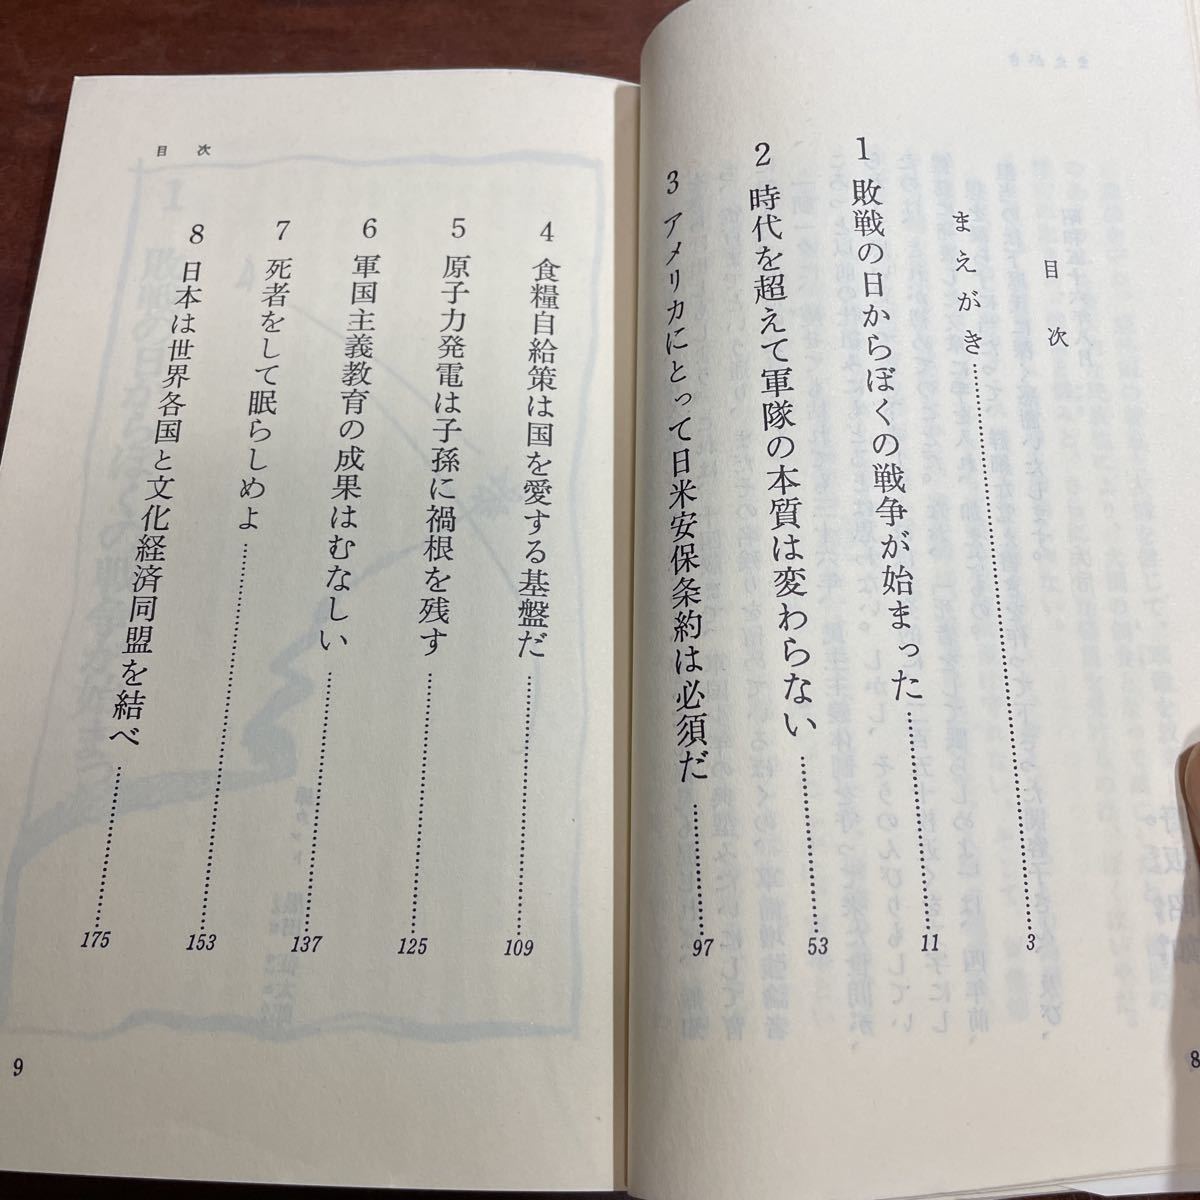 目次
まえがき……………………3
1 敗戦の日からぼくの戦争が始まった……………………11
2 時代を超えて軍隊の本質は変わらない……………………53
3 アメリカにとって日米安保条約は必須だ……………………97
8
目次
4 食糧自給策は国を愛する基盤だ……………………109
5 原子力発電は子孫に禍根を残す……………………125
6 軍国主義教育の成果はむなしい……………………137
7 死者をして眠らしめよ……………………153
8 日本は世界各国と文化経済同盟を結べ……………………175
9